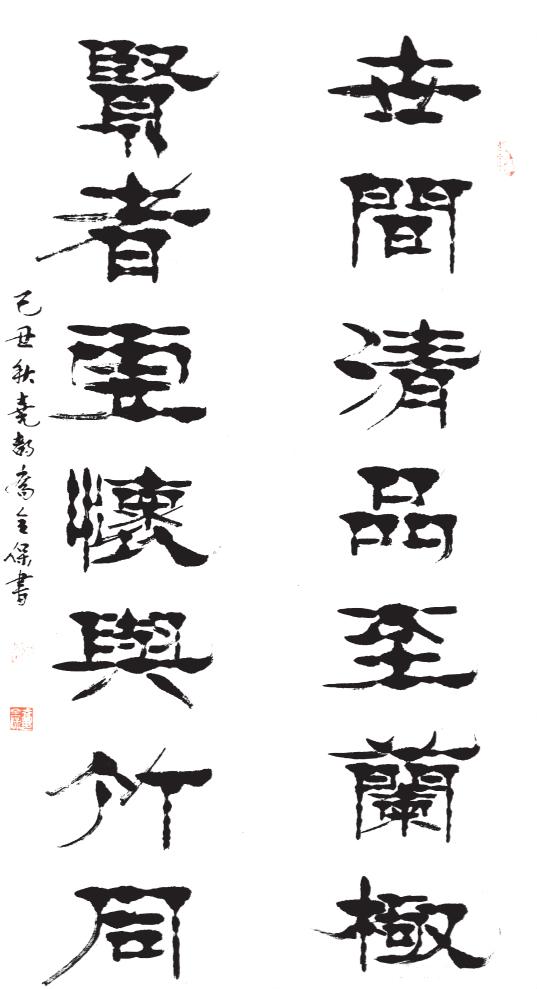 世間清品至蘭極
賢者虛懷與竹同
己丑秋堯都喬金保書